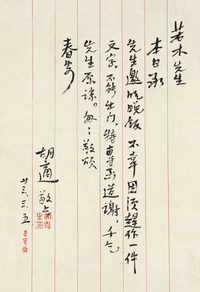 若木先生
本日承
先生邀晚飯 不幸因須趕作一件
文字 不能出门。特專函道謝。千乞
先生原諒。匆匆敬頌
春安
胡適敬上
廿三.三.五